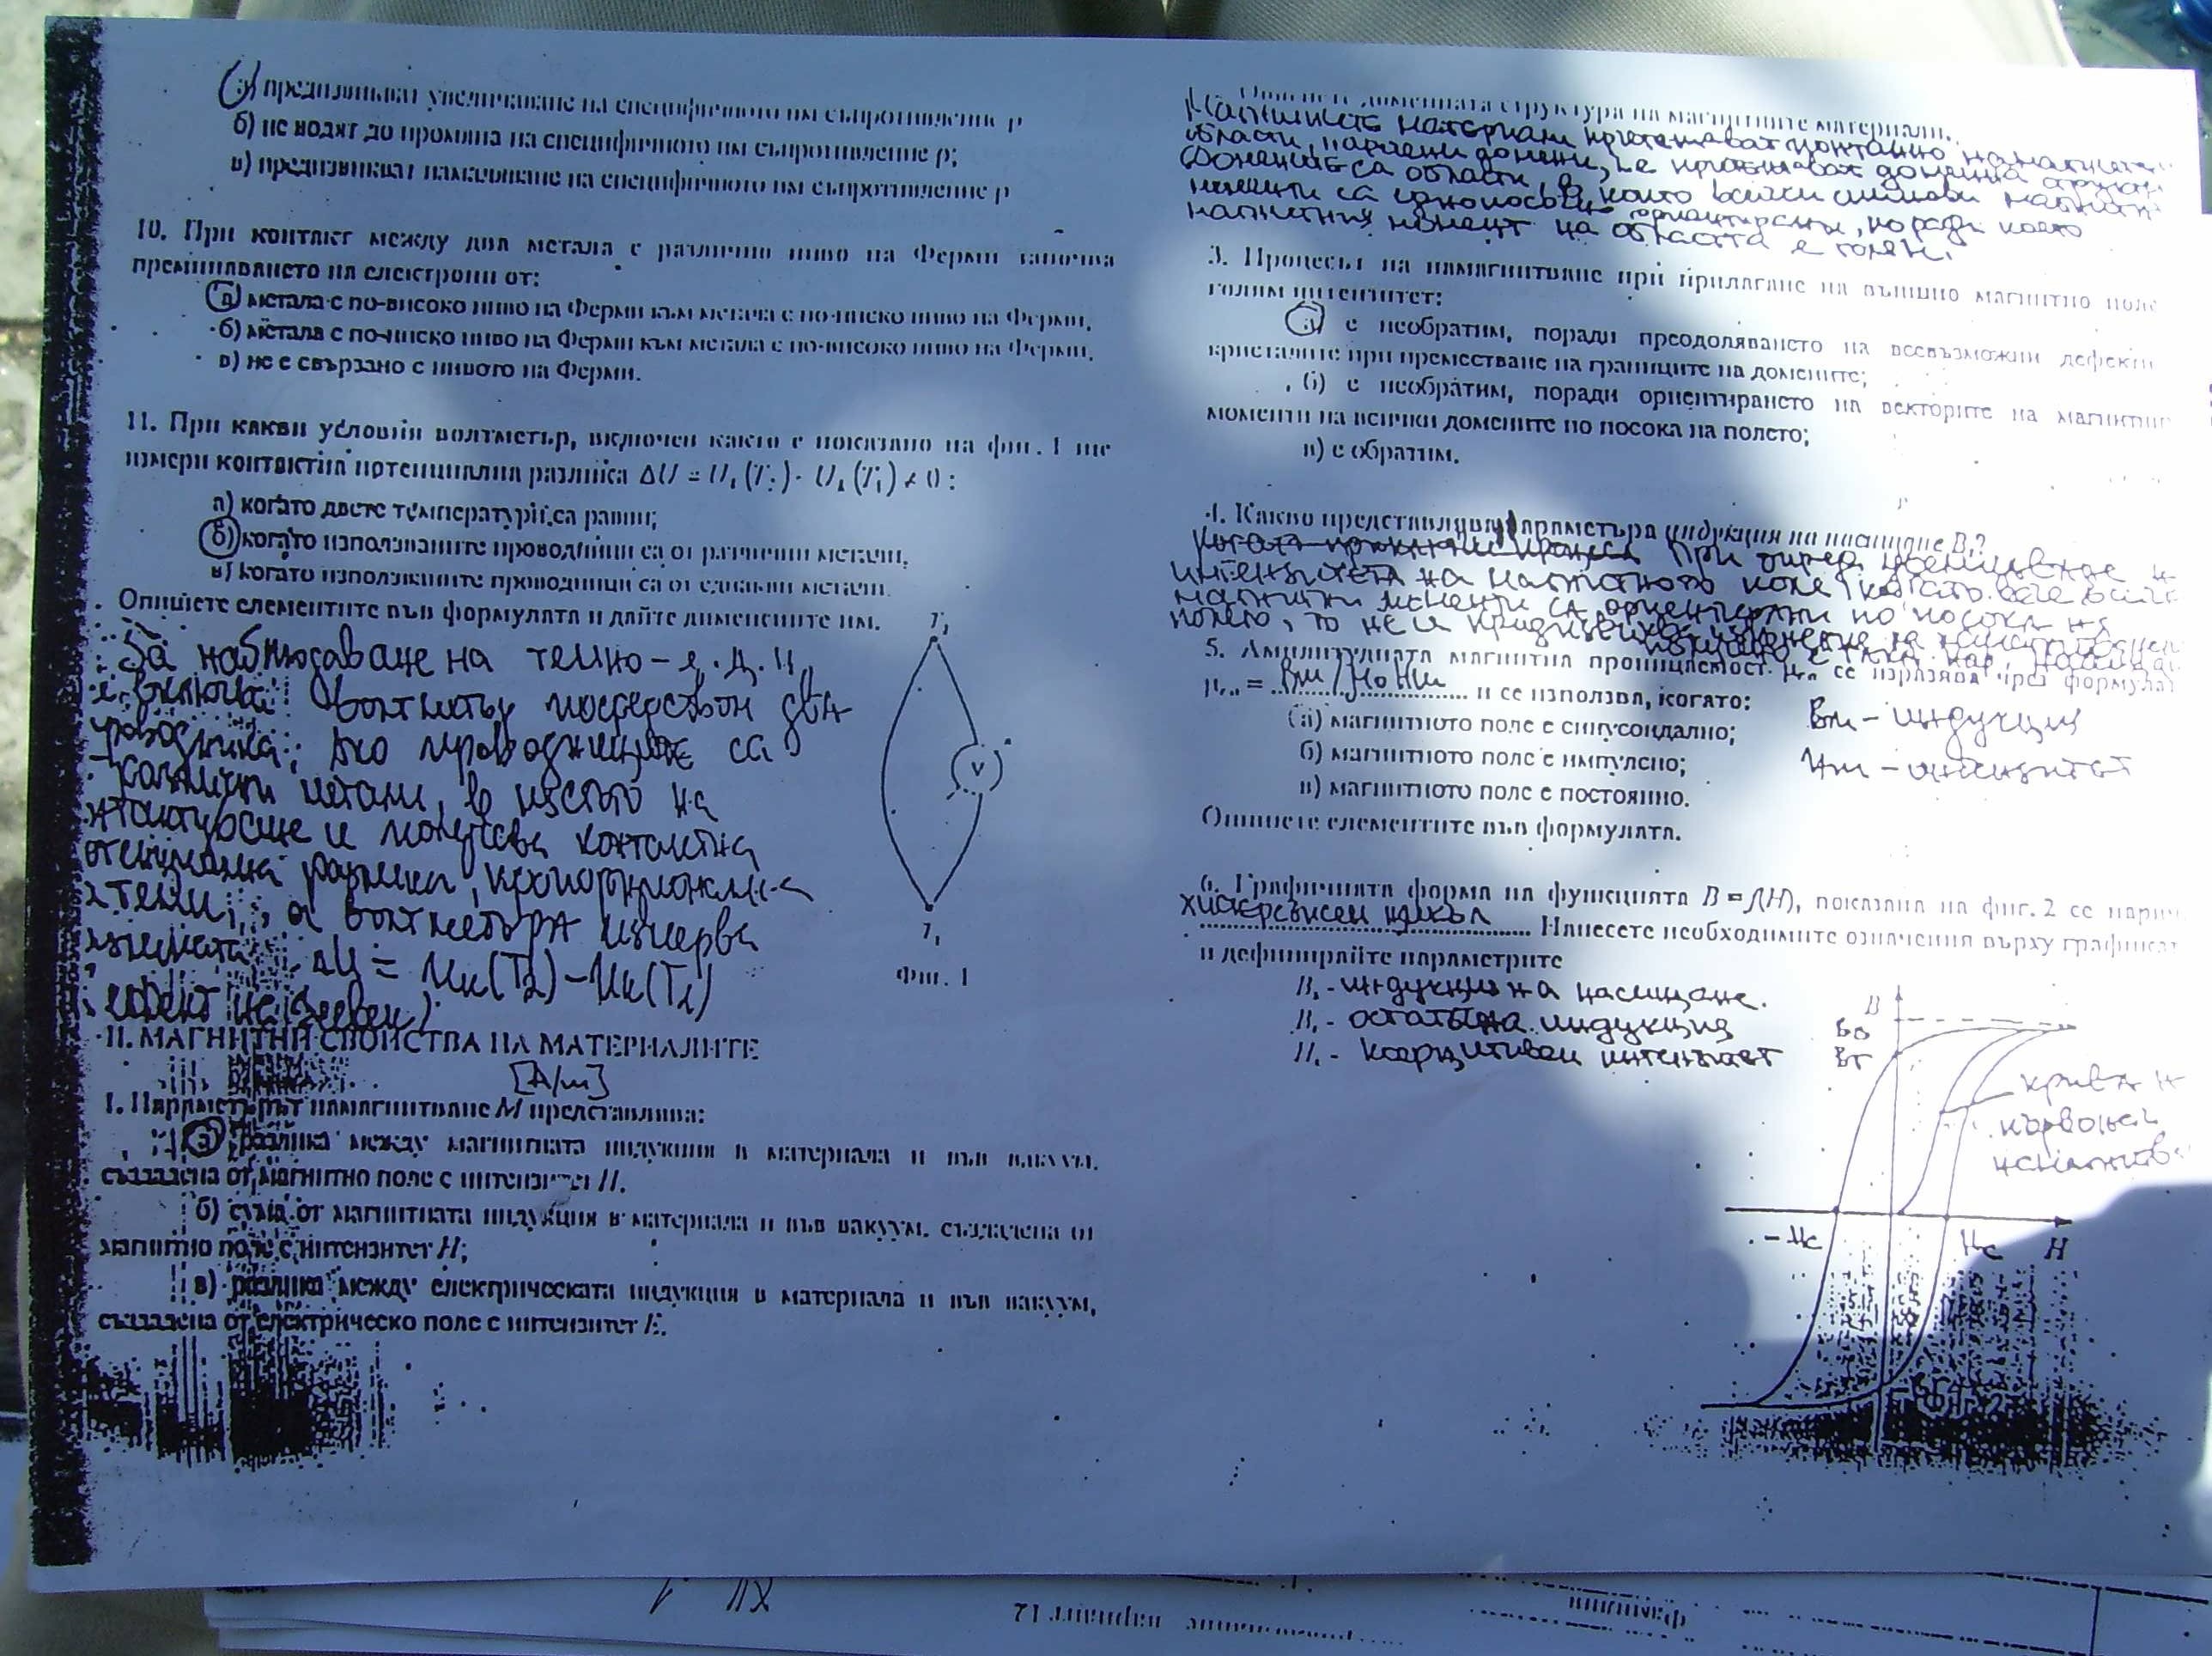 а) предизвикват увеличаване на специфичното им съпротивление ρ
б) не водят до промяна на специфичното им съпротивление ρ;
в) предизвикват намаляване на специфичното им съпротивление ρ
10. При контакт между два метала с различно ниво на Ферми започва
преминаването на електрони от:
а) метала с по-високо ниво на Ферми към метала с по-ниско ниво на Ферми.
б) метала с по-ниско ниво на Ферми към метала с по-високо ниво на Ферми.
в) не е свързано с нивото на Ферми.
11. При какви условия волтметър, включен както е показано на фиг. 1 ще
измери контактна потенциална разлика ΔU = U(T₂) - U(T₁) ≠ 0 :
а) когато двете температури са равни;
б) когато използваните проводници са от различни метали.
в) когато използваните проводници са от еднакви метали.
Опишете елементите във формулата и дайте дименсиите им.
За наблюдаване на термо-е.д.н.
включва волтметър посредством два
проводника. Ако проводниците са
различни метали, в мястото на
контактна
разлика, пропорционална
а волтметъра измерва
ΔU = Uк(T₂) – Uк(T₁)
ефект на Зеебек)
T₁
V
T₁
Фиг. 1
II. МАГНИТНИ СВОЙСТВА НА МАТЕРИАЛИТЕ
[A/m]
1. Параметърът намагнитване M представлява:
а) разлика между магнитната индукция в материала и във вакуум,
създадена от магнитно поле с интензитет H.
б) сума от магнитната индукция в материала и във вакуум, създадена от
магнитно поле с интензитет H;
в) разлика между електрическата индукция в материала и във вакуум,
създадена от електрическо поле с интензитет E.
Опишете доменната структура на магнитните материали.
Магнитните материали притежават спонтанно
области, наречени домени, т.е. притежават доменна
Домените са области, в които всички спинови
моменти са еднопосочно ориентирани, поради което
магнитния момент на областта е голям.
3. Процесът на намагнитване при прилагане на външно магнитно поле
голям интензитет:
а) е необратим, поради преодоляването на всевъзможни дефекти
кристалите при преместване на границите на домените;
б) е необратим, поради ориентирането на векторите на магнитни
моменти на всички домените по посока на полето;
в) е обратим.
4. Какво представлява параметъра индукция на насищане B?
При
интензитета на магнитното поле когато вече
магнитни моменти са ориентирани по посока на
полето, то не
5. Амплитудната магнитна проницаемост се изразява чрез
= Bm / μ₀Hm и се използва, когато:
а) магнитното поле е синусоидално;
б) магнитното поле е импулсно;
в) магнитното поле е постоянно.
Bm – индукция
Hm – интензитет
Опишете елементите във формулата.
6. Графичната форма на функцията B = f(H), показана на фиг. 2 се
хистерезисен цикъл Нанесете необходимите означения върху
и дефинирайте параметрите
B - индукция на насищане.
B - остатъчна индукция
H - коерцитивен интензитет
B
Bs
Br
крива
първонач
– Hc
Hc
H
Фиг. 2
вариант 12
Фамилия